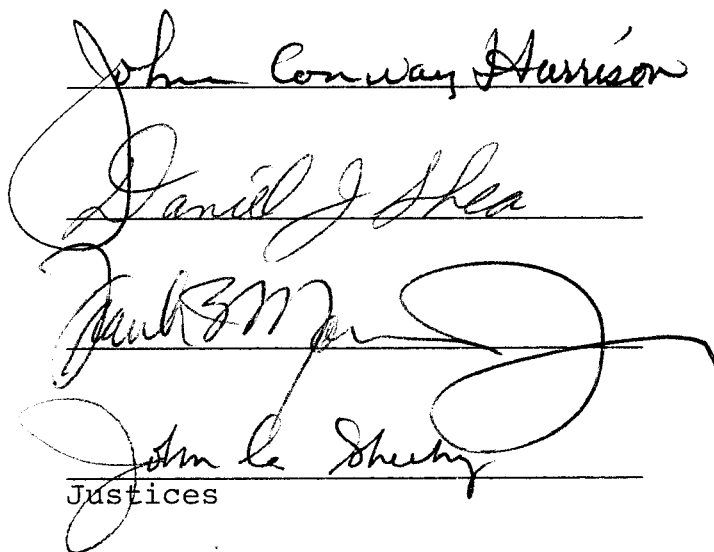 John Conway Harrison
Daniel J Shea
Frank B
John C Sheehy
Justices